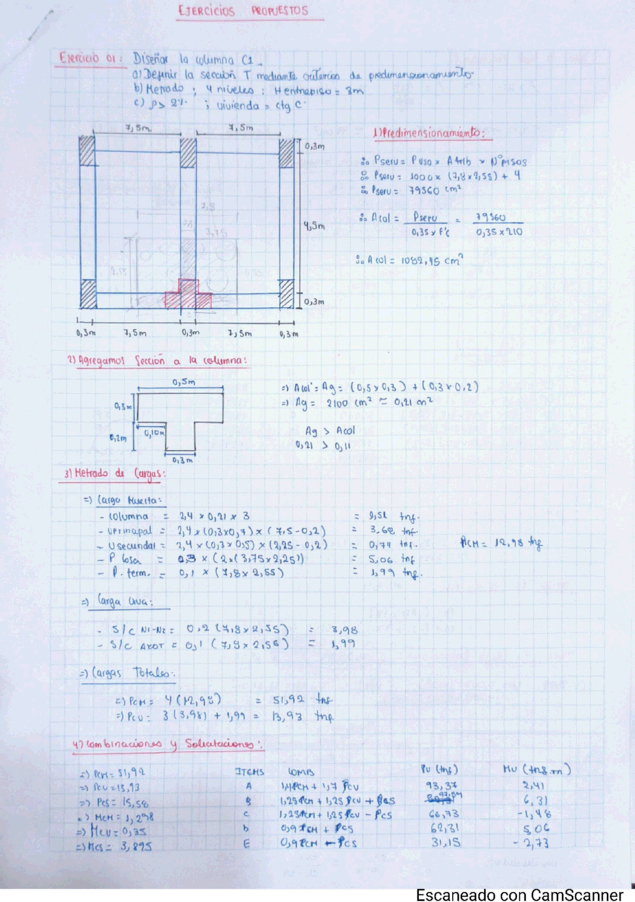 EJERCICIOS PROPUESTOS
Ejercicio 01: Diseñar la columna C1.
a) Definir la sección T mediante criterios de predimensionamiento
b) Metrado ; 4 niveles ; H entrepiso = 3m
c) ρ > 2% ; vivienda = ctg C
7,5m 7,5m
0,3m
4,5m
0,3m
0,3m 7,5m 0,3m 7,5m 0,3m
1) Predimensionamiento:
∴ Pserv = Piso × Atrib × N° pisos
∴ Pserv = 1000 × (7,8 × 2,55) + 4
∴ Pserv = 79560 cm²
∴ Acol = Pserv / 0,35 × f'c = 79560 / 0,35 × 210
∴ Acol = 1082,45 cm²
2) Agregamos Sección a la columna:
0,5m
0,3m
0,2m
0,10m
0,3m
=) Acol = Ag = (0,5 × 0,3) + (0,3 × 0,2)
=) Ag = 2100 cm² = 0,21 m²
Ag > Acol
0,21 > 0,11
3) Metrado de Cargas:
=) Carga Muerta:
- columna = 2,4 × 0,21 × 3 = 1,51 tnf.
- v principal = 2,4 × (0,3×0,7) × (7,5-0,2) = 3,68 tnf.
- v secundal = 2,4 × (0,3 × 0,5) × (2,25 - 0,2) = 0,74 tnf.
- P losa = 0,3 × (2×(3,75×2,25)) = 5,06 tnf.
- P. term. = 0,1 × (7,8 × 2,55) = 1,99 tnf.
PCM = 12,98 tnf
=) Carga Viva:
- S/C N1-N2 = 0,2 (7,8 × 2,55) = 3,98
- S/C AZOT = 0,1 (7,8 × 2,55) = 1,99
=) Cargas Totales:
=) PCM = 4 (12,98) = 51,92 tnf
=) PCV = 3 (3,98) + 1,99 = 13,93 tnf.
4) Combinaciones y Solicitaciones:
=) PCM = 51,92
=) PCV = 13,93
=) PCS = 15,58
=) MCM = 1,298
=) MCV = 0,35
=) MCS = 3,895
ITEMS COMBS PU (tnf) MU (tnf.m)
A 1,4PCM + 1,7 PCV 93,37 2,41
B 1,25PCM + 1,25 PCV + PCS 97,89 6,31
C 1,25PCM + 1,25 PCV - PCS 66,73 -1,48
D 0,9PCM + PCS 62,31 5,06
E 0,9PCM - PCS 31,15 -2,73
Escaneado con CamScanner